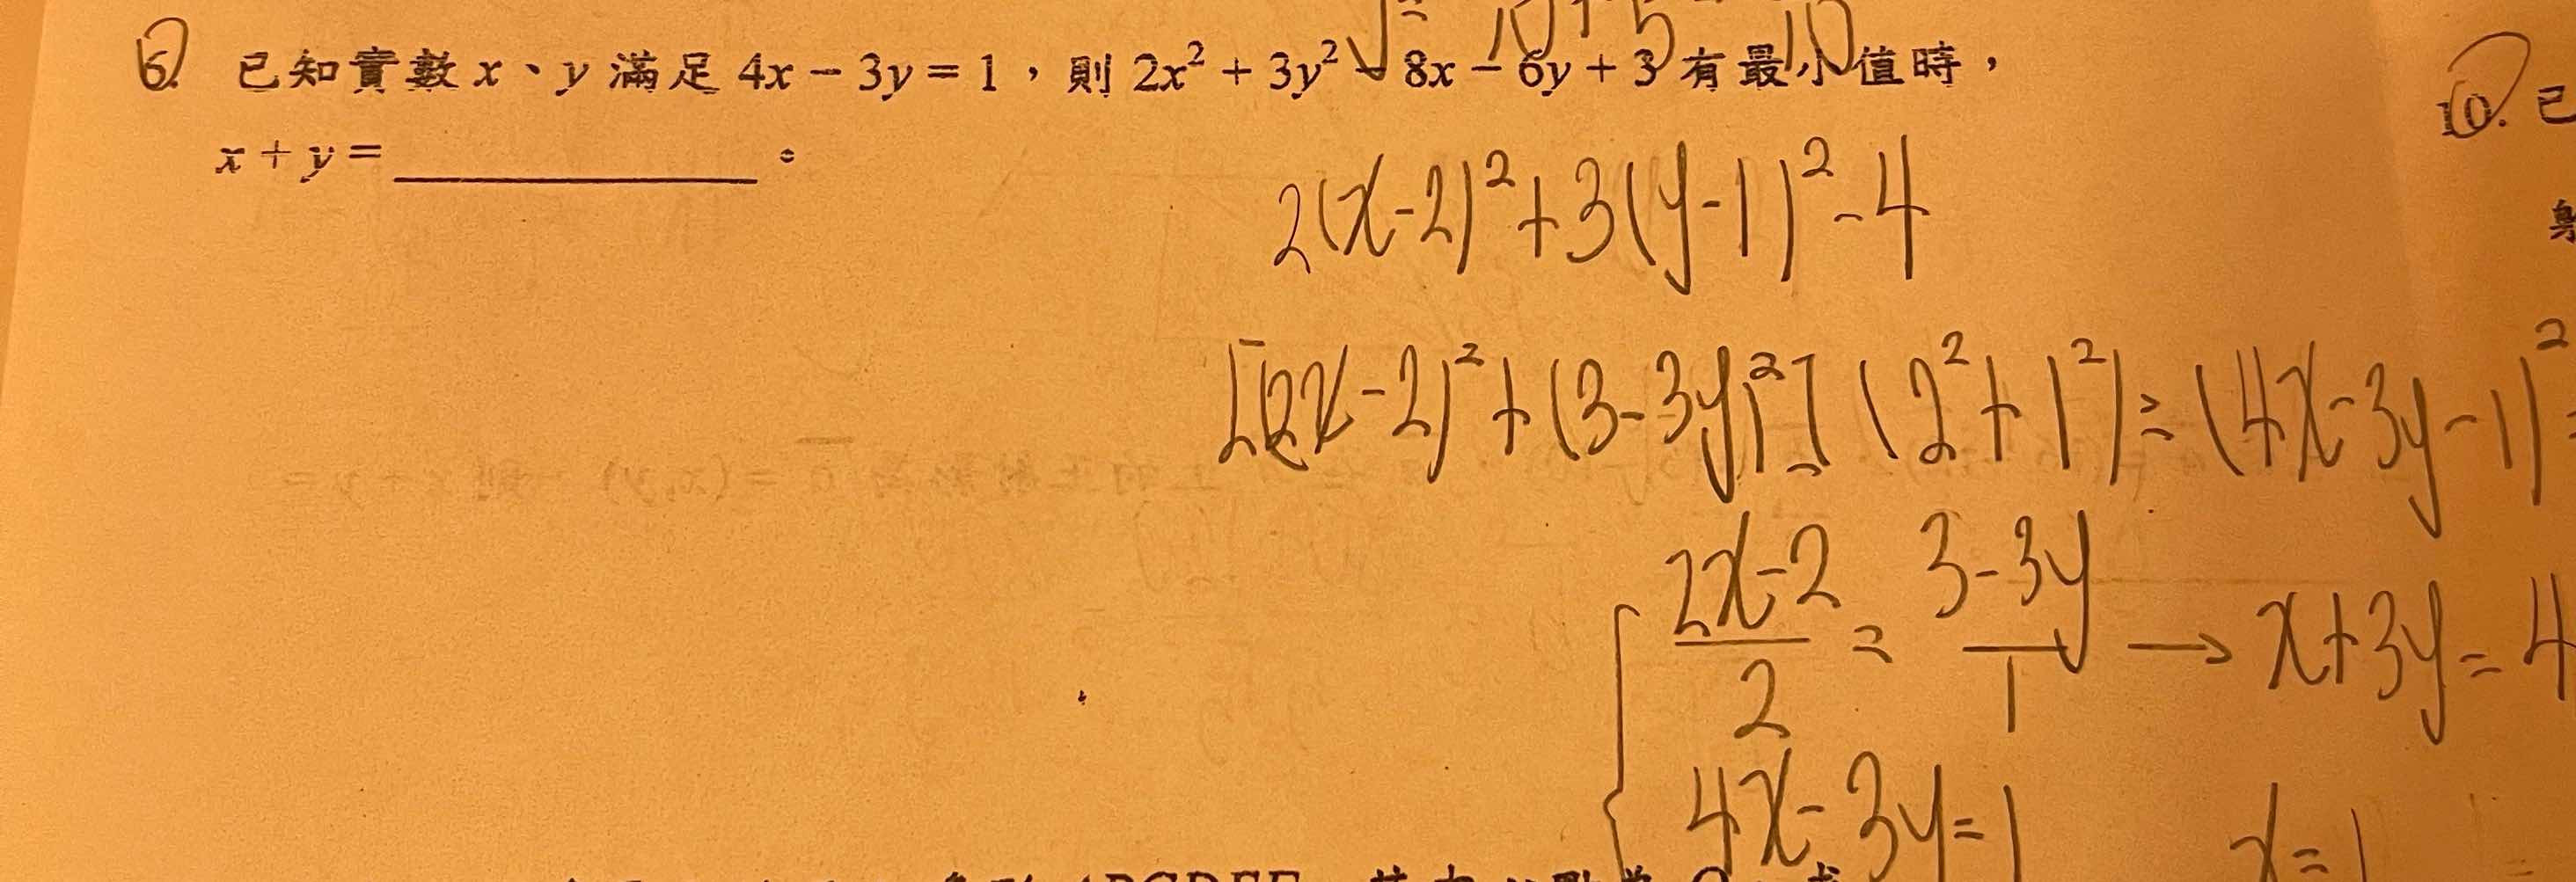 6. 已知實數 x、y 滿足 4x − 3y = 1，則 2x² + 3y² − 8x − 6y + 3 有最小值時，
x + y = ________ 。
10. 已
2(x-2)²+3(y-1)²-4
[(2x-2)²+(3-3y)²] (2²+1²) ≥ (4x-3y-1)²
2x-2/2 = 3-3y/1 → x+3y=4
4x-3y=1 x=1